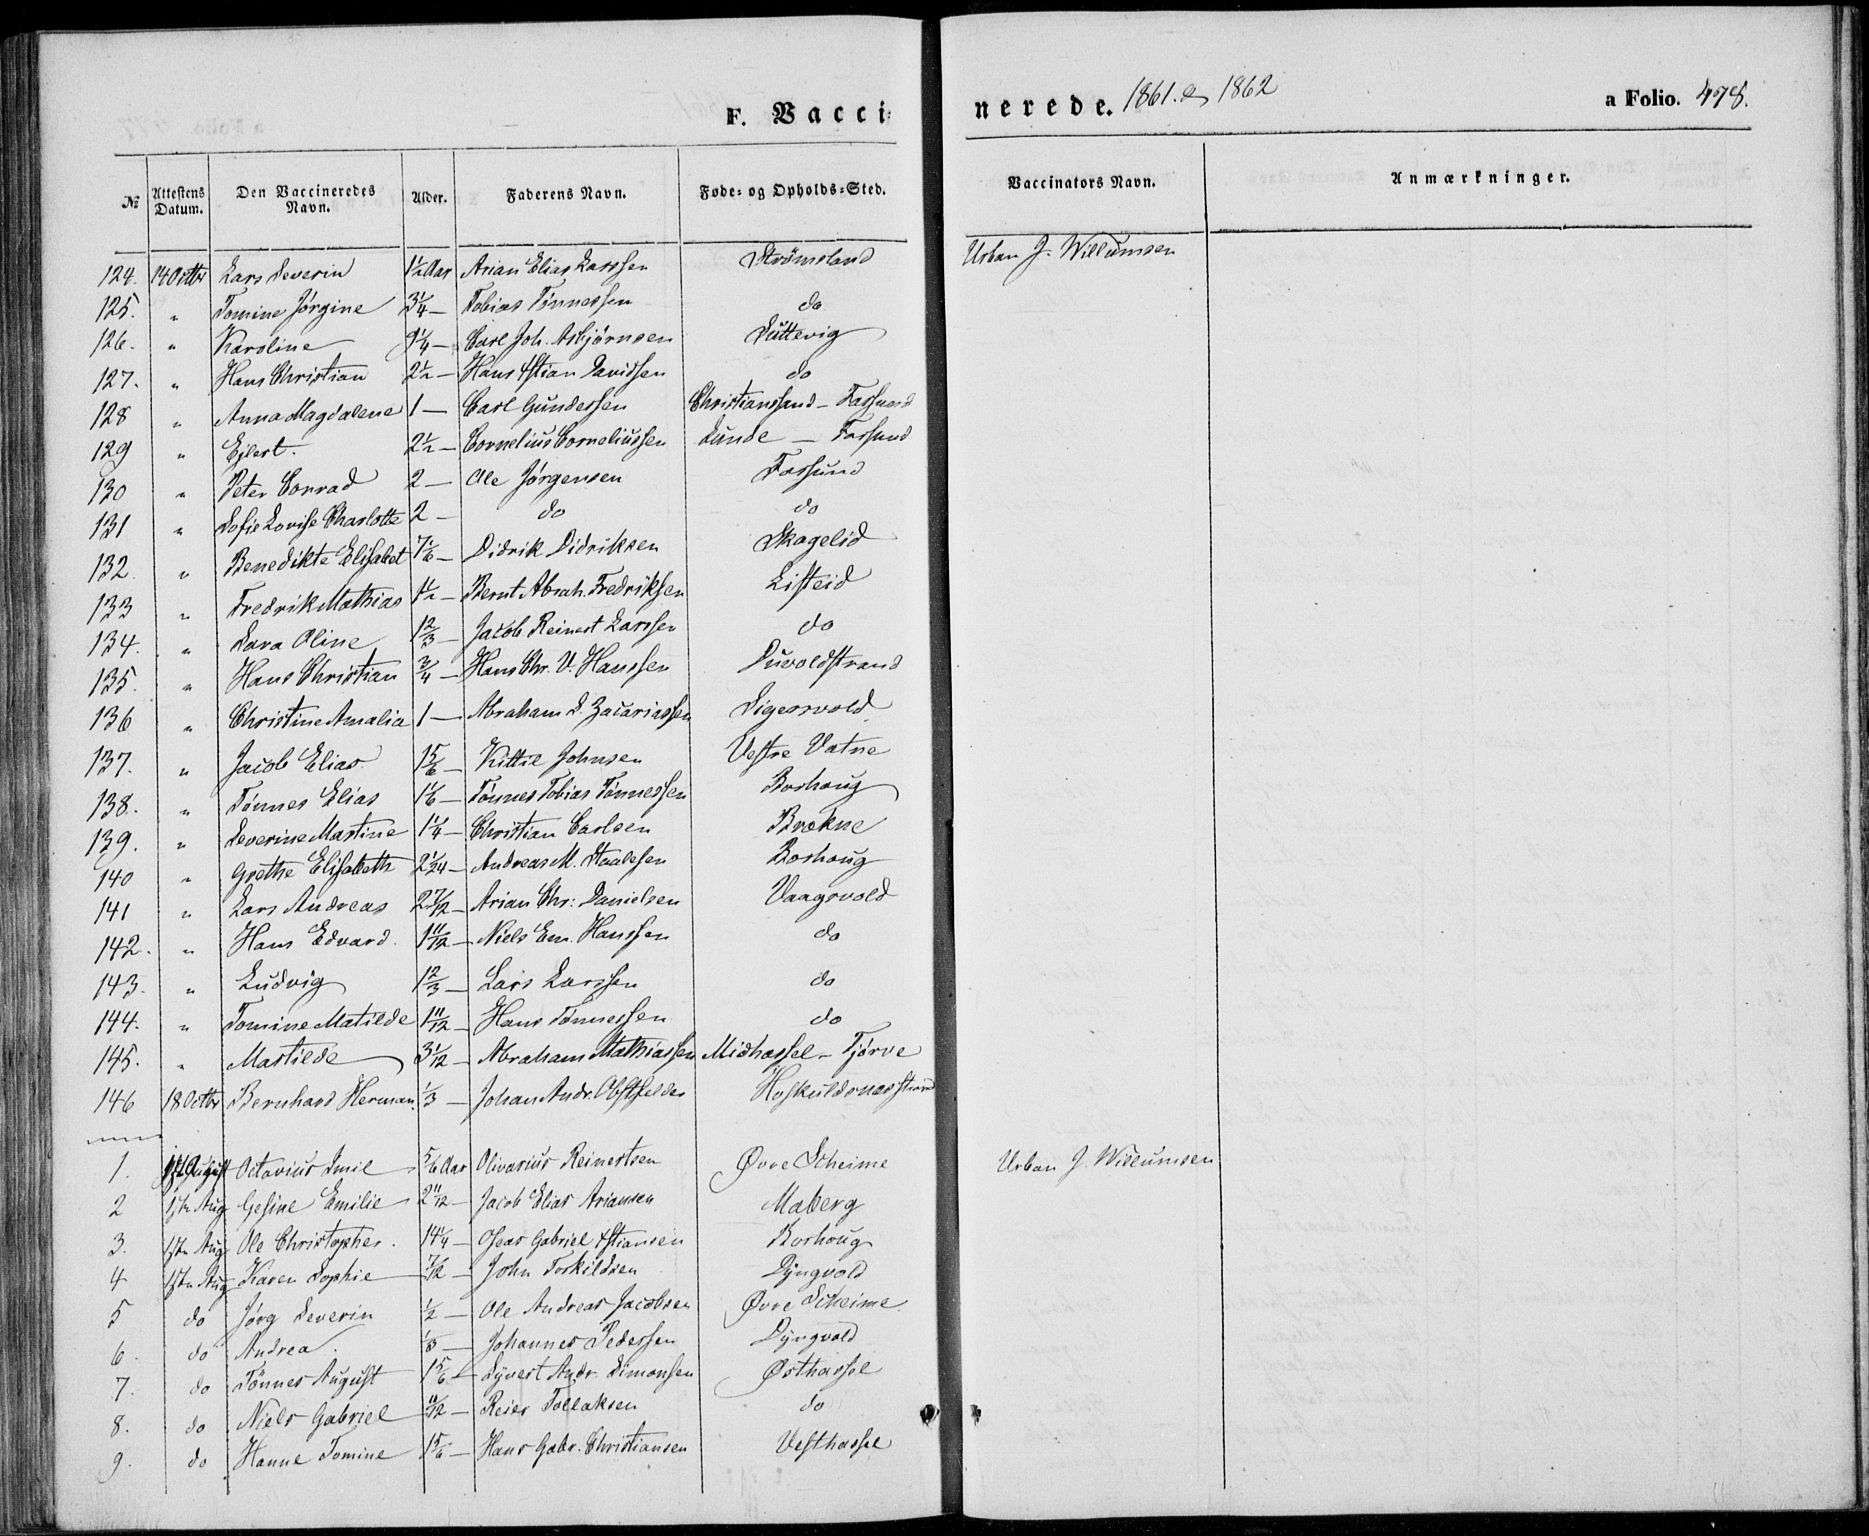 F. Vacci- nerede. 1861. & 1862 a Folio. 478.
No Attestens Datum. Den Vaccineredes Navn. Alder. Faderens Navn. Føde- og Opholds-Sted. Vaccinators Navn. Anmærkninger.
124. 14 Octbr Lars Severin 1½ Aar Arian Elias Larssen Strømsland Urban J. Willumsen
125. " Tomine Jørgine 3¼ — Tobias Tønnessen do
126. " Karoline — Carl Joh. Asbjørnsen Luttevig
127. " Hans Christian 2½ — Hans Xstian Davidsen do
128 " Anna Magdalene 1 — Carl Gundersen Christianssand — Farsund
129 " Ejlert. 2½ — Cornelius Corneliussen Lunde — Farsund
130 " Peter Conrad 2 — Ole Jørgensen Farsund
131 " Sofie Lovise Charlotte 2 — do do
132. " Benedikte Elisabet — Didrik Didriksen Skagelid
133 " Fredrik Mathias 1½ — Bernt Abrah. Fredriksen Listeid
134. " Lava Oline 1⅔ — Jacob Reinert Larssen do
135. " Hans Christian ¾ — Hans Chr. V. Hanssen
136 " Christine Amalia 1 — Abraham S. Zacariassen Sigersvold
137. " Jacob Elias 1⅚ — Kittil Johnsen Vestre Vatne
138. " Tønnes Elias 1⅙ — Tønnes Tobias Tønnessen Borhoug
139. " Severine Martine 1¼ — Christian Carlsen Brekne
140 " Grethe Elisabeth 2 1/24 — Andreas M. Staalesen Borhoug
141 " Lars Andreas 2 7/12 — Arian Chr: Danielsen Vaagsvold
142. " Hans Edvard. 1 11/12 — Niels Em. Hanssen do
143. " Ludvig 1⅔ — Lars Larssen do
144. " Tomine Matilde 1 11/12 — Hans Tønnessen do
145. " Martilde 3 1/12 — Abraham Mathiassen Midhassel — Tjørve
146 18 Octbr Bernhard Herman ⅓ — Johan Andr. Obstfelder
1. August Octavius Emil ⅚ Aar Olivarius Reinertsen Øvre Skeime Urban J. Willumsen
2 Aug Gesine Emilie 2 11/12 — Jacob Elias Ariansen Maberg
3. Aug Ole Christopher. — Oseas Gabriel Xstiansen Borhoug
4 Aug Karen Sophie 7/12 — John Torkildsen Dyngvold
5 do Jørg Severin ½ — Ole Andreas Jacobsen Øvre Skeime
6. do Andrea. ⅓ — Johannes Pedersen Dyngvold
7. do Tönnes August 1⅚ — Syvert Andr. Simonsen Østhassel
8. do Niels Gabriel 11/12 — Reier Tollaksen do
9. do Hanne Tomine 1⅚ — Hans Gabr. Christiansen Vesthassel